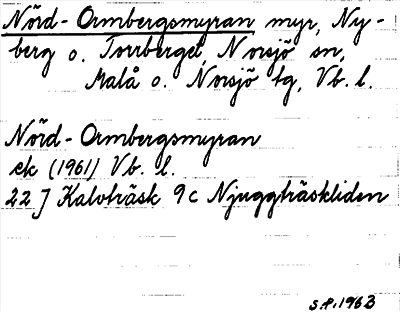 Nörd-Ormbergsmyran myr, Ny-
berg o. Torrberget, Norsjö sn,
Malå o. Norsjö tg, Vb. l.
Nörd-Ormbergsmyran
ek (1961) Vb. l.
22 J Kalvträsk 9 c Njuggträskliden
S.P. 1963